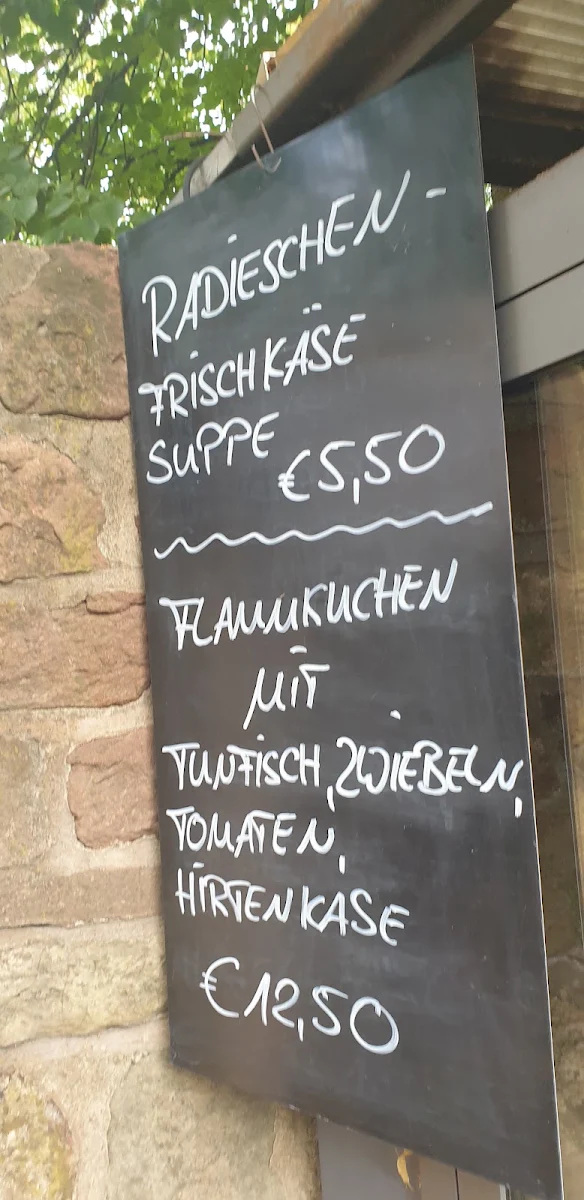 RADIESCHEN-
FRISCHKÄSE
SUPPE
€5,50
FLAMMKUCHEN
MIT
TUNFISCH, ZWIEBELN,
TOMATEN,
HIRTENKÄSE
€12,50